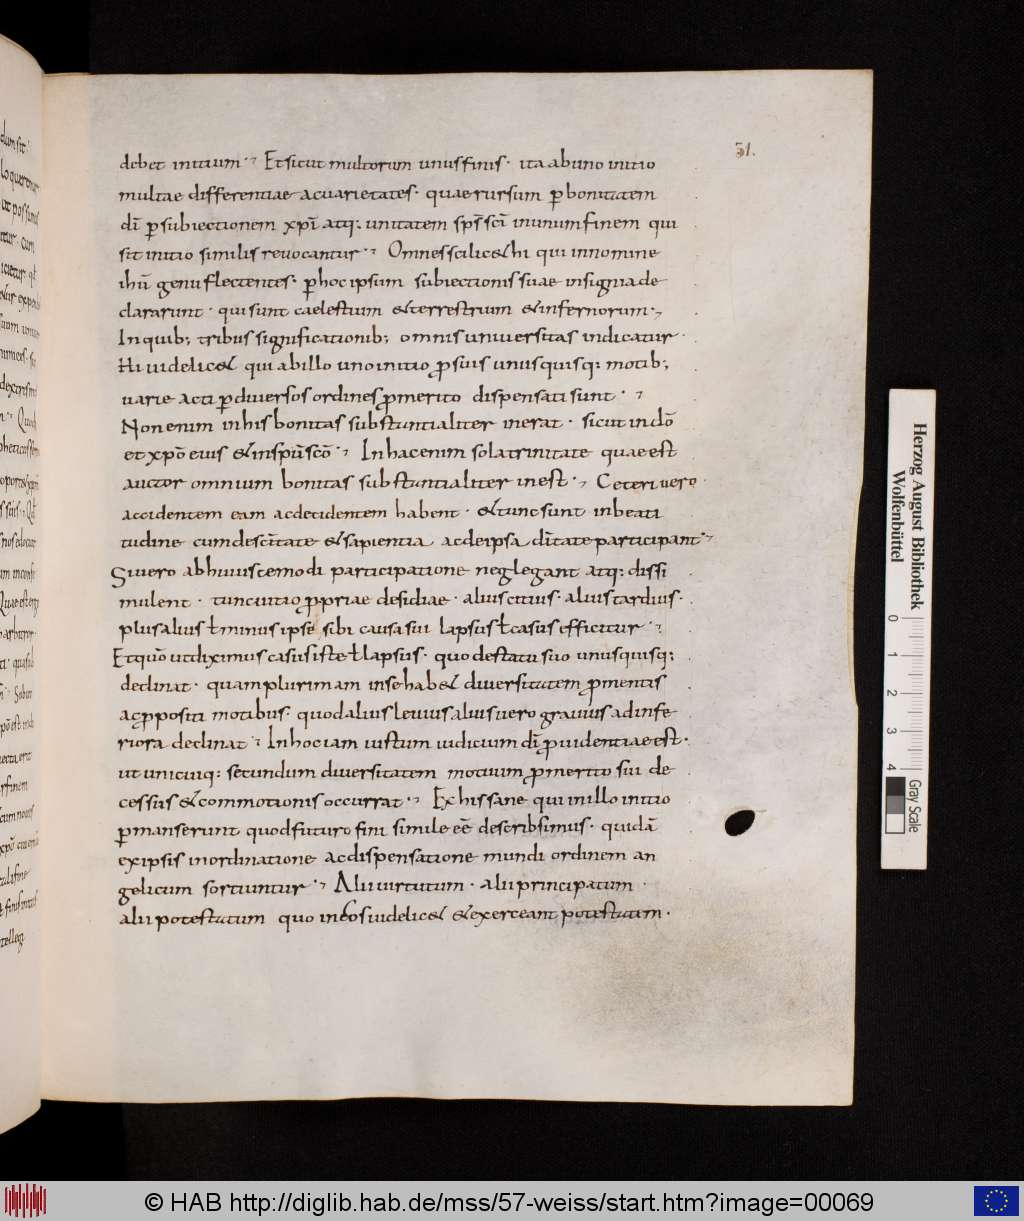 dum sit
lo quer
ut possimus
31.
debet initium · Et sicut multorum unus finis · ita ab uno initio
multae differentiae ac varietates · quae rursum p̄ bonitatem
dī p̄ subiectionem xp̄i atq; unitatem sps̄ scī in unum finem qui
sit initio similis revocantur · Omnes scilic& hi qui in nomine
ihū genu flectentes · p̄ hoc ipsum subiectionis suae insignia de
clararunt · qui sunt caelestium & terrestrium & infernorum ·
In quib; tribus significationib; omnis universitas indicatur ·
Hi videlic& qui ab illo uno initio ꝓ suis unusquisq; motib;
varie acti p̄ diversos ordines ꝓ merito dispensati sunt ·
Non enim in his bonitas substantialiter inerat · sicut in dō
et xp̄o eius & in spū scō · In hac enim sola trinitate quae est
auctor omnium bonitas substantialiter inest · Ceteri vero
accidentem eam ac decidentem habent · & tunc sunt in beati
tudine cum de scītate & sapientia ac de ipsa dītate participant ·
Si vero ab huiuscemodi participatione neglegant atq; dissi
mulent · tunc vitio ꝓpriae desidiae · alius citius · alius tardius ·
plus alius ł minus ipse sibi causa sui lapsus ł casus efficitur ·
Et quō ut diximus casus iste ł lapsus · quo de statu suo unusquisq;
declinat · quam plurimam in se hab& diversitatem ꝓ mentis
ac ꝓpositi motibus · quod alius levius alius vero gravius ad infe
riora declinat · In hoc iam iustum iudicium dī ꝓvidentiae est ·
ut unicuiq; secundum diversitatem motuum ꝓ merito sui de
cessus & commotionis occurrat · Ex his sane qui in illo initio
p̄manserunt quod futuro fini simile eē describsimus · quidā
ex ipsis in ordinatione ac dispensatione mundi ordinem an
gelicum sortiuntur · Alii virtutum · alii principatum ·
alii potestatum quo in hos videlic& & exerceant potestatem ·
Herzog August Bibliothek
Wolfenbüttel
0 1 2 3 4
Gray Scale
© HAB http://diglib.hab.de/mss/57-weiss/start.htm?image=00069